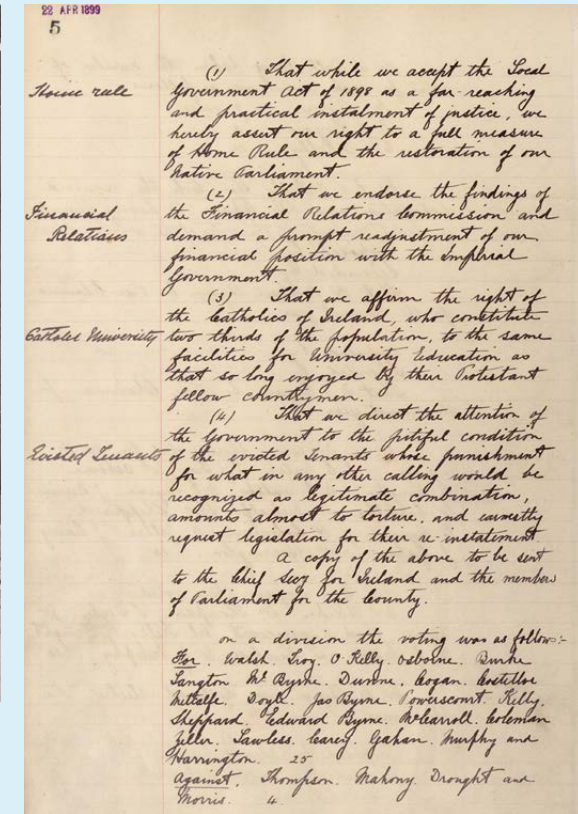 22 APR 1899
5
(1) That while we accept the Local
Home rule
Government Act of 1898 as a far-reaching
and practical instalment of justice, we
hereby assert our right to a full measure
of Home Rule and the restoration of our
Native Parliament.
(2) That we endorse the findings of
Financial
the Financial Relations Commission and
Relations
demand a prompt readjustment of our
financial position with the Imperial
Government.
(3) That we affirm the right of
the Catholics of Ireland, who constitute
Catholic University
two thirds of the population, to the same
facilities for University Education as
that so long enjoyed by their Protestant
fellow countrymen.
(4) That we direct the attention of
the Government to the pitiful condition
Evicted Tenants
of the evicted Tenants whose punishment
for what in any other calling would be
recognized as legitimate combination,
amounts almost to torture, and earnestly
request legislation for their re-instatement.
A copy of the above to be sent
to the Chief Secy for Ireland and the members
of Parliament for the County.
on a division the voting was as follows:-
For. Walsh. Troy. O'Kelly. Osborne. Burke
Langton Mc Byrne. Dunne. Cogan. Costelloe
Metcalfe. Doyle. Jas Byrne. Powerscourt. Kelly.
Sheppard. Edward Byrne. McCarroll. Coleman
Zeller. Lawless. Carey. Gahan. Murphy and
Harrington. 25
Against. Thompson. Mahony. Drought and
Morris. 4.